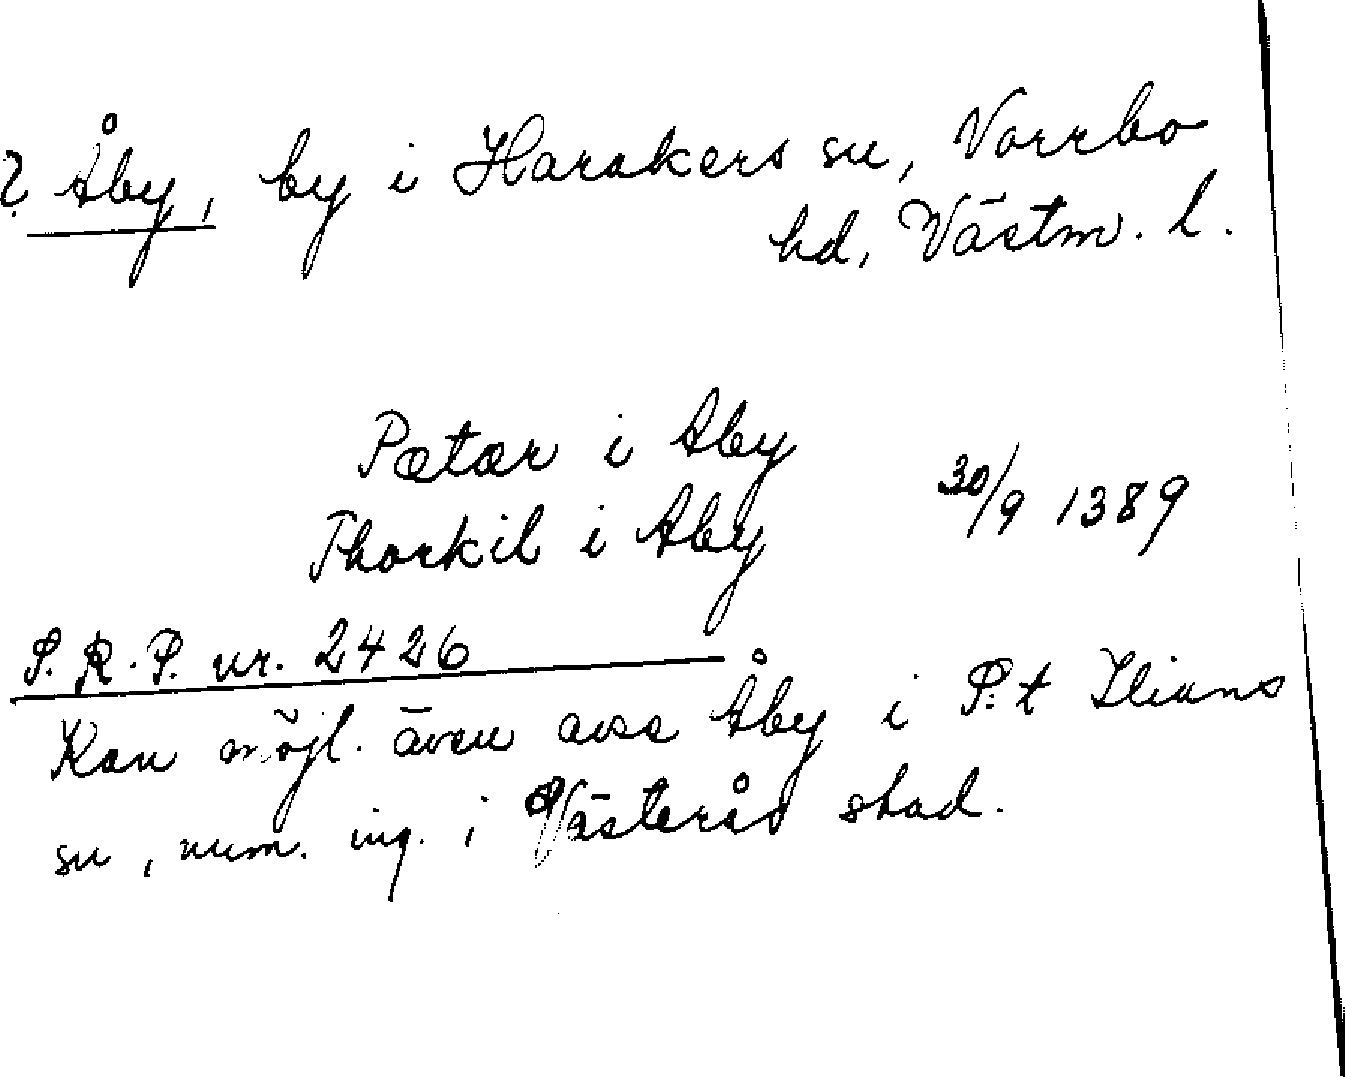 ? Åby, by i Harakers sn, Norrbo
hd, Västm. l.
Pætær i Aby
Thorkil i Aby
30/9 1389
S.R.P. nr. 2426
Kan möjl. även avse Åby i S:t Ilians
sn, num. ing. i Västerås stad.